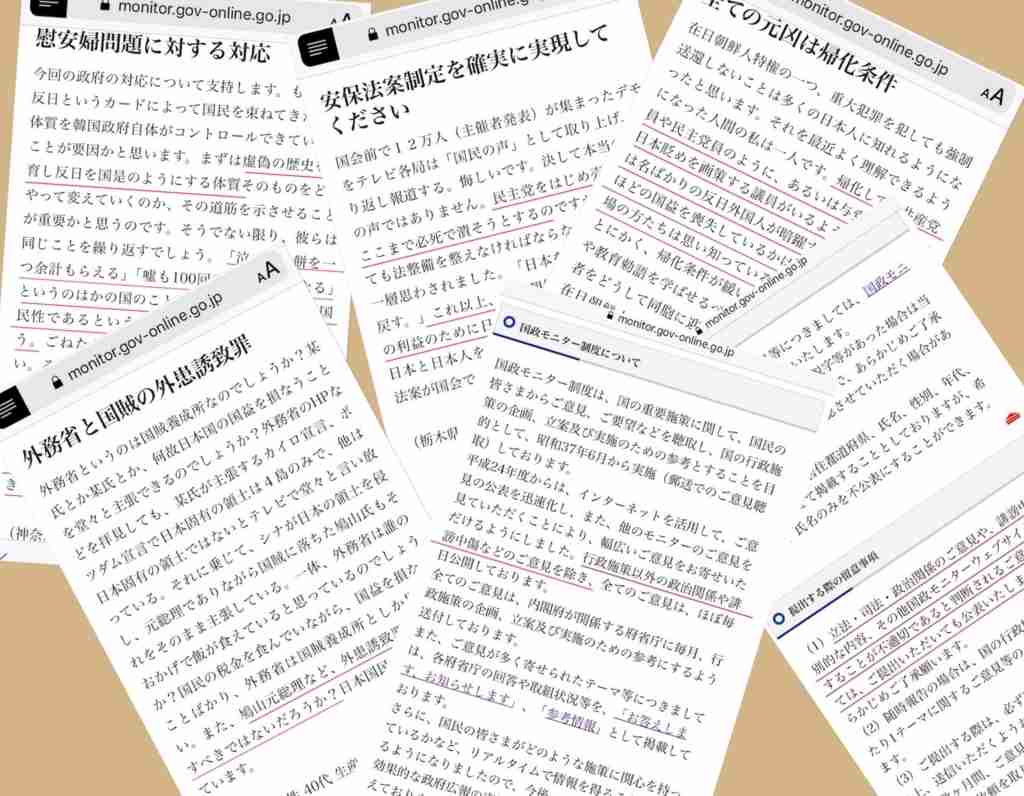 monitor.gov-online.go.jp
慰安婦問題に対する対応
今回の政府の対応について支持します。も
反日というカードによって国民を束ねてき
体質を韓国政府自体がコントロールできてい
ことが要因かと思います。まずは虚偽の歴史
育し反日を国是のようにする体質そのものをど
やって変えていくのか、その道筋を示させるこ
が重要かと思うのです。そうでない限り、彼らは
同じことを繰り返すでしょう。「泣
餅を一
つ余計もらえる」「嘘も100回
というのはかの国のこと
民性であるという
う。ごねた
monitor.gov-online.go.jp
安保法案制定を確実に実現して
ください
国会前で12万人（主催者発表）が集まったデモ
をテレビ各局は「国民の声」として取り上げ、
り返し報道する。悔しいです。決して本当の
の声ではありません。民主党をはじめ
ここまで必死で潰そうとするのですか
ても法整備を整えなければならな
一層思わされました。「日本を
戻す。」これ以上、
の利益のために日
日本と日本人を
法案が国会で
（栃木県
monitor.gov-online.go.jp
全ての元凶は帰化条件
在日朝鮮人特権の一つ、重大犯罪を犯しても強制
送還しないことは多くの日本人に知れるようにな
ったと思います。それを最近よく理解できるよう
になった人間の私は一人です。帰化し
共産党
員や民主党員のように、あるいは与
日本貶めを画策する議員がいるよ
は名ばかりの反日外国人が暗躍
ほどの国益を喪失しているか
場の方たちは思い知ってい
とにかく、帰化条件が緩い
や教育勅語を学ばせるべ
者をどうして同胞に迎
monitor.gov-online.go.jp
外務省と国賊の外患誘致罪
外務省というのは国賊養成所なのでしょうか？某
氏とか某氏とか、何故日本国の国益を損なうこと
を堂々と主張できるのでしょうか？外務省のHPな
どを拝見しても、某氏が主張するカイロ宣言、ポ
ツダム宣言で日本固有の領土は４島のみで、他は
日本固有の領土ではないとテレビで堂々と言い放
っている。それに乗じて、シナが日本の領土を侵
し、元総理でありながら国賊に落ちた鳩山氏もそ
れをそのまま主張している。一体、外務省は誰の
おかげで飯が食えていると思っているのでしょう
か？国民の税金を食んでいながら、国益を損な
ことばかり、外務省は国賊養成所としか
い。また、鳩山元総理など、外患誘致罪
すべきではないだろうか？日本国民
ています。
40代
monitor.gov-online.go.jp
国政モニター制度について
国政モニター制度は、国の重要施策に関して、国民の
皆さまからご意見、ご要望などを聴取し、国の行政施
策の企画、立案及び実施のための参考とすることを目
的として、昭和37年6月から実施（郵送でのご意見聴
取）しております。
平成24年度からは、インターネットを活用して、ご意
見の公表を迅速化し、また、他のモニターのご意見を
見ていただくことにより、幅広いご意見をお寄せいた
だけるようにしました。行政施策以外の政治関係や誹
謗中傷などのご意見を除き、全てのご意見は、ほぼ毎
日公開しております。
全てのご意見は、内閣府が関係する府省庁に毎月、行
政施策の企画、立案及び実施のための参考にするよう
送付しております。
また、ご意見が多く寄せられたテーマ等につきまして
は、各府省庁の回答や取組状況等を、「お答えしま
す、お知らせします」、「参考情報」として掲載して
おります。
さらに、国民の皆さまがどのような施策に関心を持っ
ているかなど、リアルタイムで情報を得る
るようになりましたので、今後
効果的な政府広報の
monitor.gov-online.go.jp
等につきましては、国政モニ
いたします。
字等があった場合は当
さ、あらかじめご了承
させていただく場合があ
住都道府県、氏名、性別、年代、
て掲載することとしておりますが、希
氏名のみを不公表にすることができます。
提出する際の留意事項
(1) 立法・司法・政治関係のご意見や、誹謗中
別的な内容、その他国政モニターウェブサイ
することが不適切であると判断されるご意
ては、ご提出いただいても公表いたしま
らかじめご了承願います。
(2) 随時報告の場合は、国の行政
たり1テーマに関するご意見等の
ます。
(3) ご提出する際は、必ず